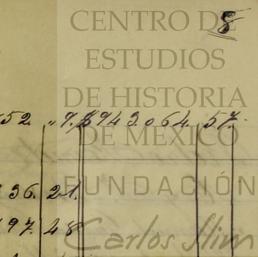 8
CENTRO DE
ESTUDIOS
DE HISTORIA
52. „ 9. $943.064.57.
DE MÉXICO
36. 21.
FUNDACIÓN
97. 48
Carlos Slim